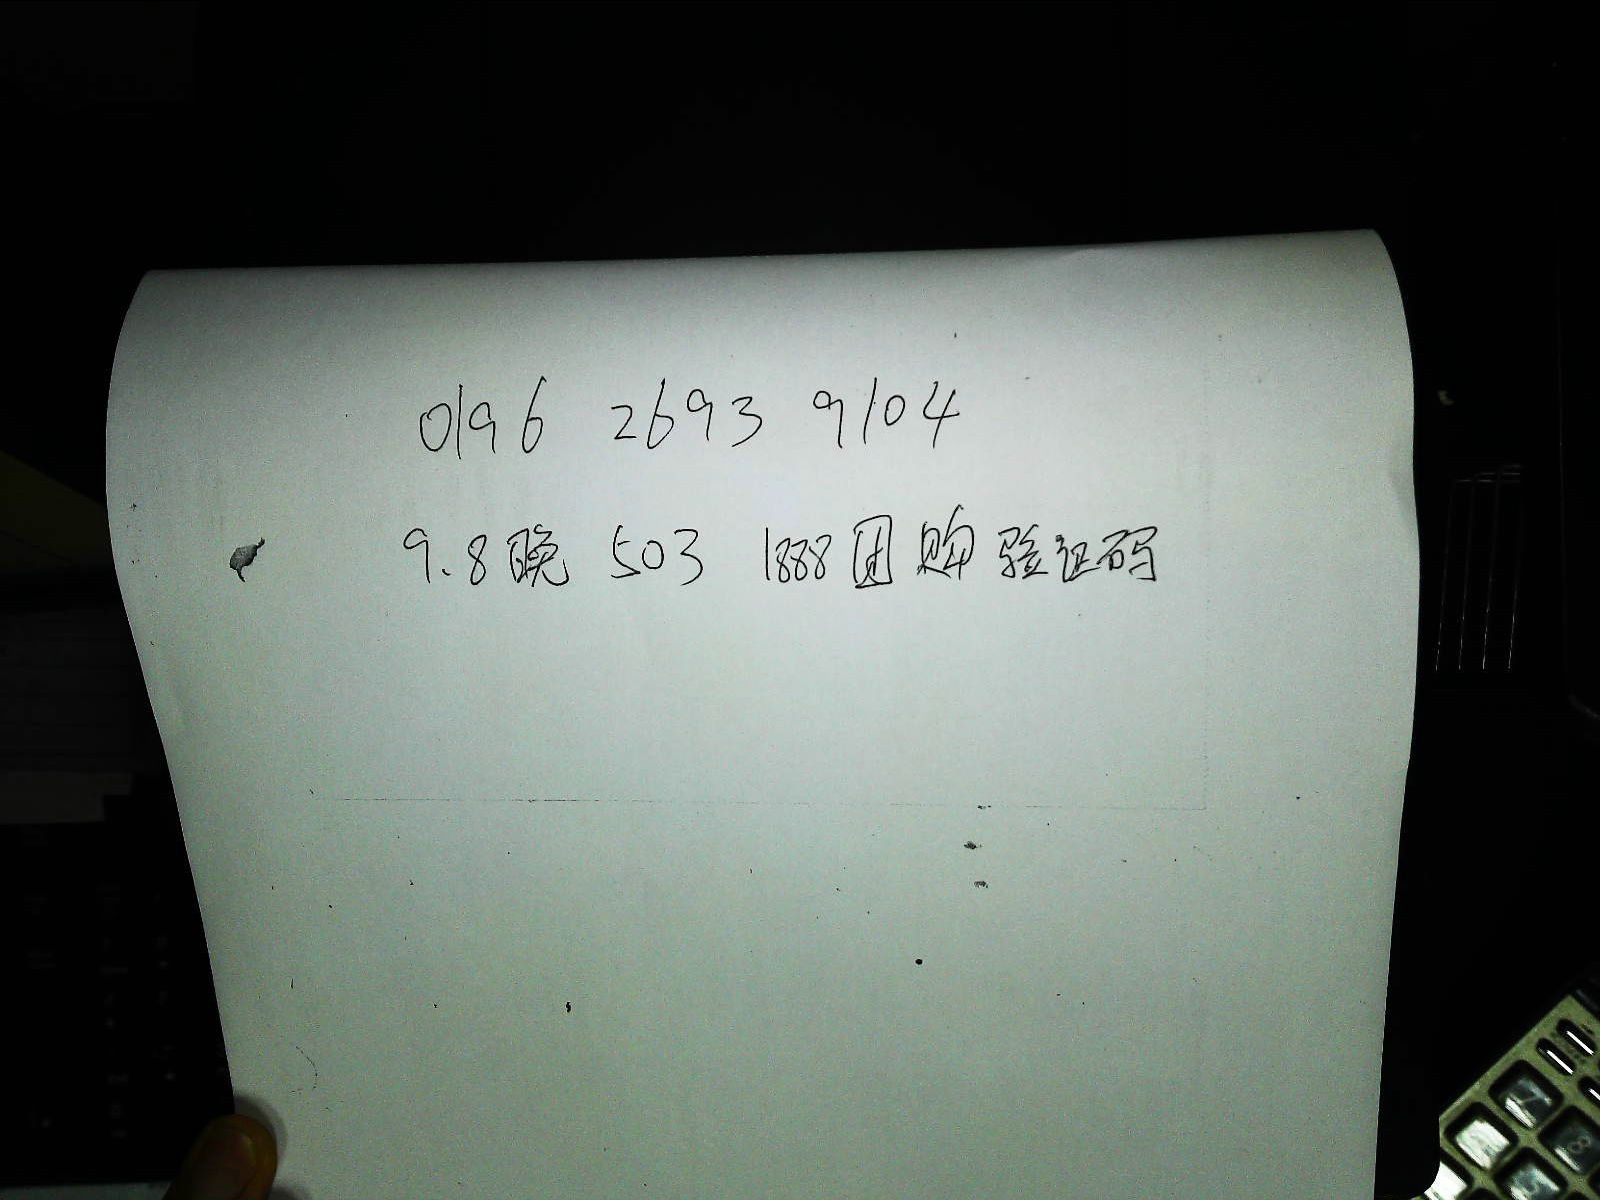 0196 2693 9104
9.8晚 503 1888团购验证码